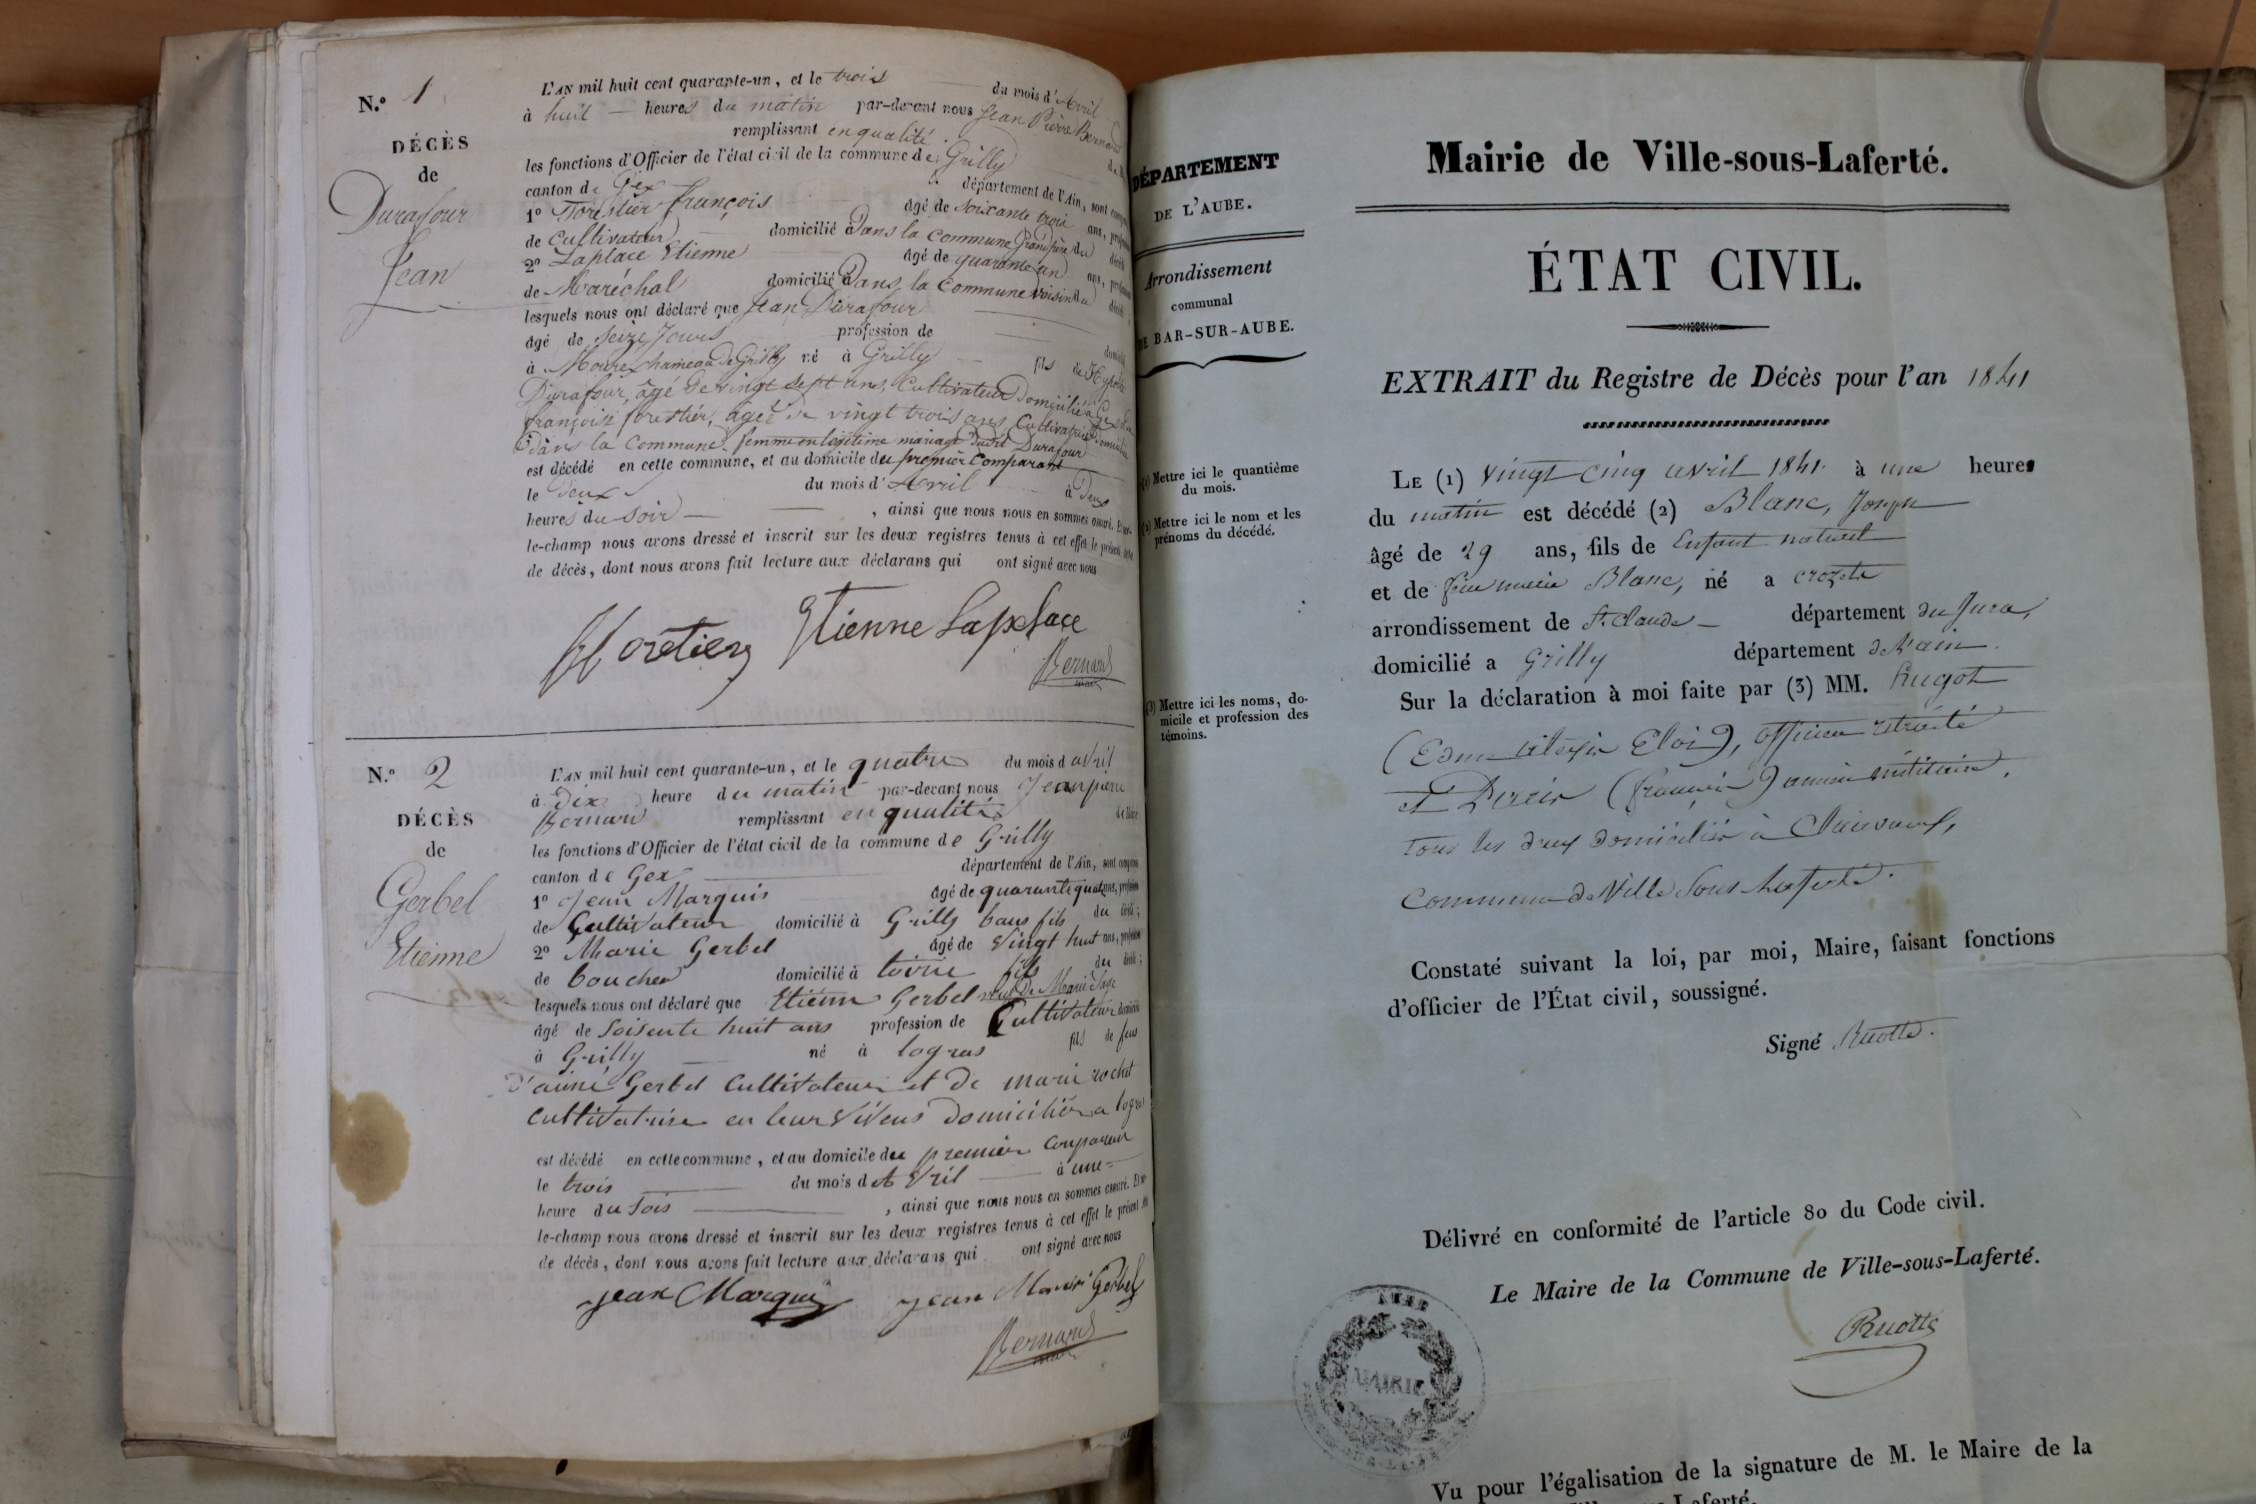 N.º 1
DÉCÈS
de
Durafour
Jean
L'AN mil huit cent quarante-un, et le trois du mois d'Avril
à huit heures du matin par-devant nous Jean Pierre Bernard
remplissant en qualité
les fonctions d'Officier de l'état civil de la commune de Grilly
canton de Gex département de l'Ain, sont
1º Forestier françois âgé de soixante trois ans,
de Cultivateur domicilié Dans la commune Grand père du
2º Laplace Etienne âgé de quarante un ans,
de Maréchal domicilié Dans la commune voisin du
lesquels nous ont déclaré que Jean Durafour
âgé de seize Jours profession de
à Mourex hameau de Grilly né à Grilly fils de
Durafour, âgé de vingt sept ans, Cultivateur Domicilié à
françoise forestier, âgée de vingt trois ans Cultivatrice
Dans la Commune femme en légitime mariage dudit Durafour
est décédé en cette commune, et au domicile du premier Comparant
le Deux du mois d'Avril à Deux
heures du soir , ainsi que nous nous en sommes assuré. Et sur-
le-champ nous avons dressé et inscrit sur les deux registres tenus à cet effet le présent
de décès, dont nous avons fait lecture aux déclarans qui ont signé avec nous
Etienne Laplace
Bernard
N.º 2
DÉCÈS
de
Gerbel
Etienne
L'AN mil huit cent quarante-un, et le quatre du mois d avril
à Dix heure du matin par-devant nous Jean pierre
Bernard remplissant en qualité
les fonctions d'Officier de l'état civil de la commune de Grilly
canton de Gex département de l'Ain, sont
1º Jean Marquis âgé de quarante quatre ans,
de Cultivateur domicilié à Grilly baux fils du
2º Marie Gerbel âgé de vingt huit ans,
de boucher domicilié à fils du
lesquels nous ont déclaré que Etienne Gerbel
âgé de soisente huit ans profession de Cultivateur
à Grilly né à logras fils de feus
d'aimé Gerbel Cultivateur et de marie rochat
cultivatrise en leur vivens domiciliés a logras
est décédé en cette commune, et au domicile du premier
le trois du mois d Avril à une
heure du sois , ainsi que nous nous en sommes assuré. Et sur-
le-champ nous avons dressé et inscrit sur les deux registres tenus à cet effet le présent
de décès, dont nous avons fait lecture aux déclarans qui ont signé avec nous
jean Marquis jean Marie Gerbel
Bernard
DÉPARTEMENT
DE L'AUBE.
Arrondissement
communal
DE BAR-SUR-AUBE.
(1) Mettre ici le quantième
du mois.
(2) Mettre ici le nom et les
prénoms du décédé.
(3) Mettre ici les noms, do-
micile et profession des
témoins.
Mairie de Ville-sous-Laferté.
ÉTAT CIVIL.
EXTRAIT du Registre de Décès pour l'an 1841
LE (1) vingt cinq avril 1841 à une heures
du matin est décédé (2) Blanc, Joseph
âgé de 29 ans, fils de Enfant naturel
et de feu marie Blanc, né a crozets
arrondissement de St. Claude département du Jura,
domicilié a Grilly département de l'ain.
Sur la déclaration à moi faite par (3) MM. hugot
(Edme Eloi), officier retraité
et (françois) ancien militaire,
tous les deux domiciliés à Clairvaux,
commune de Ville sous Laferté.
Constaté suivant la loi, par moi, Maire, faisant fonctions
d'officier de l'État civil, soussigné.
Signé Ruotte.
Délivré en conformité de l'article 80 du Code civil.
Le Maire de la Commune de Ville-sous-Laferté.
Ruotte
MAIRIE
Vu pour l'égalisation de la signature de M. le Maire de la